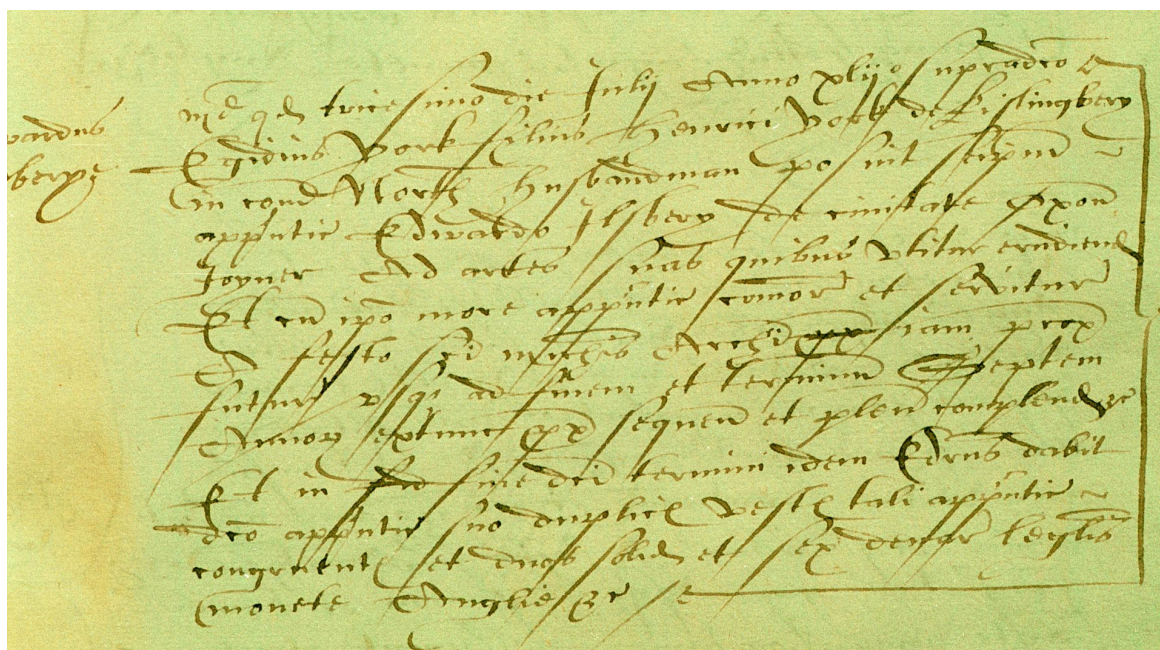 md qd tricesimo die Julij Anno xlijo supradco
wardus
Egidius York filius Henrici York de
bery
in com North husbandman posuit seipm
apprntic Edwardo Ilsbery de civitate Oxon
Joyner Ad artes suas quibus utitur erudiend
Et cu ipo more apprntic comor et servitur
A festo sci michis Archi iam prox
futur usq ad finem et terminum Septem
Annor extunc px sequen et plen complend &c
Et in fine dci termini idem Edrus dabit
dco apprntic suo duplic vest tali apprntic
congruent et duos solid et sex denar legalis
monete Anglie &c